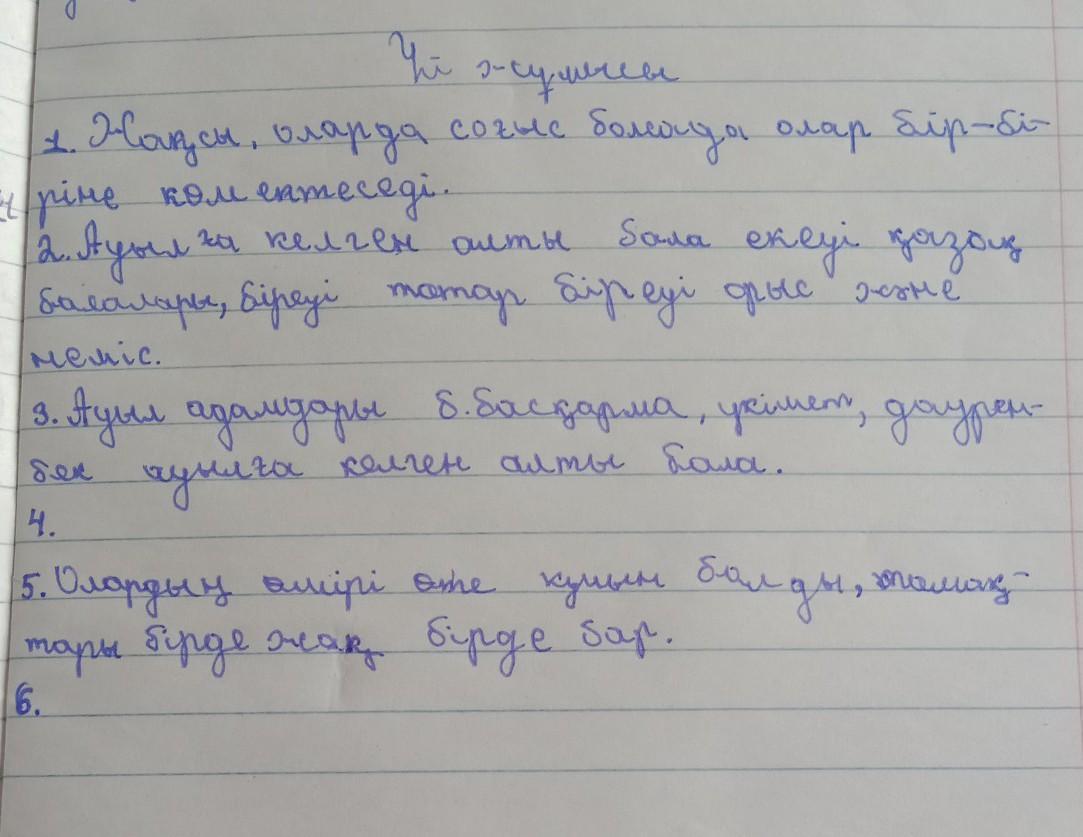 Үй жұмысы
1. Жақсы, оларда соғыс болсада олар бір-бі-
ріне көмектеседі.
2. Ауылға келген алты бала екеуі қазақ
балалары, біреуі татар біреуі орыс және
неміс.
3. Ауыл адамдары б.басқарма, үкімет, дәурен-
бек ауылға келген алты бала.
4.
5. Олардың өмірі өте қиын балды, тамақ-
тары бірде жақ бірде бар.
6.